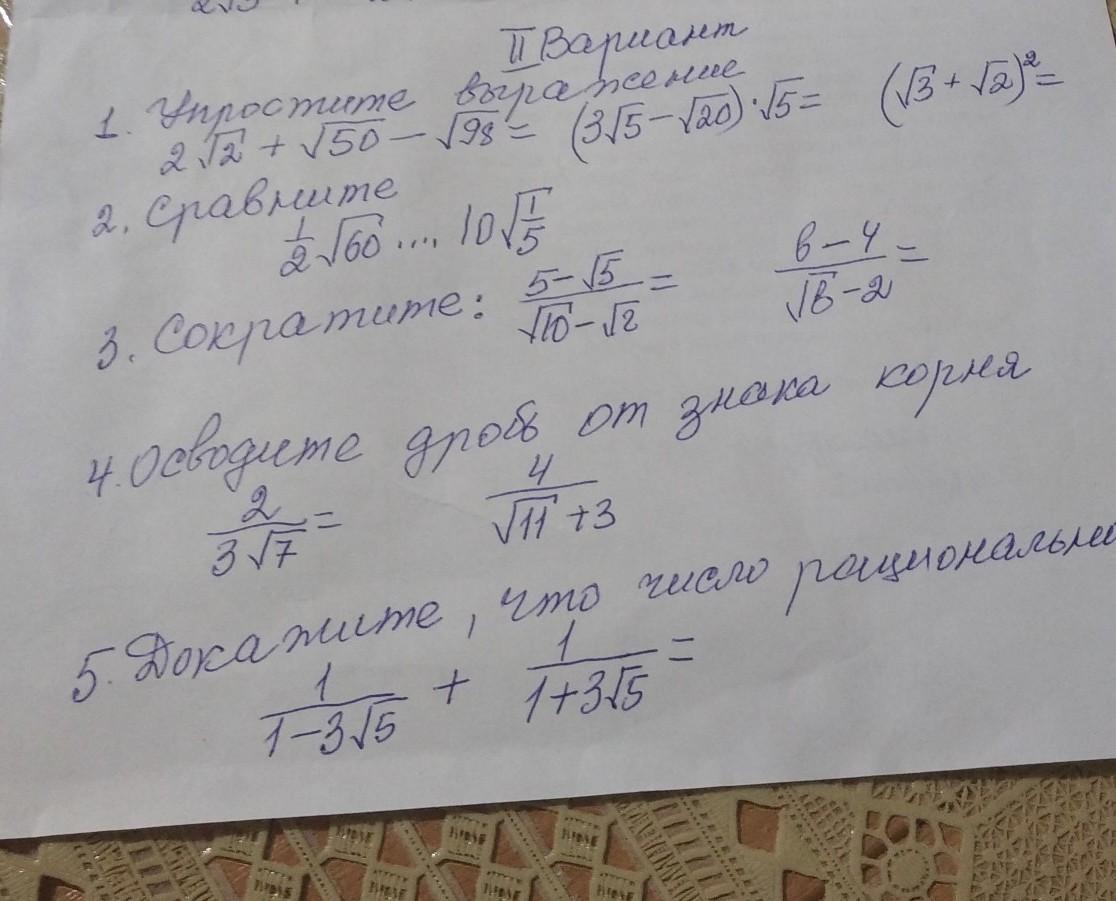 II Вариант
1. Упростите выражение
2√2 + √50 − √98 = (3√5 − √20)·√5 = (√3 + √2)² =
2. Сравните
1/2 √60 .... 10√1/5
3. Сократите: (5−√5)/(√10−√2) = (в−4)/(√в−2) =
4. Осводите дробь от знака корня
2/(3√7) = 4/(√11+3)
5. Докажите, что число рационально
1/(1−3√5) + 1/(1+3√5) =